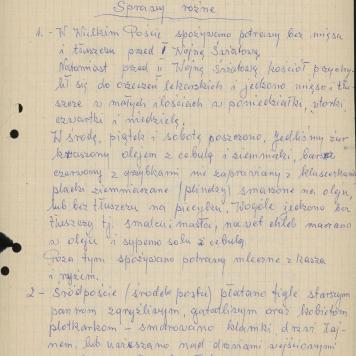 Sprawy różne
1. - W Wielkim Poście spożywano potrawy bez mięsa
i tłuszczu przed I Wojną Światową.
Natomiast przed II Wojną Światową kościół przychy-
lił się do orzeczeń lekarskich i jedzono mięso i tłu-
szcze w małych ilościach w poniedziałki, wtorki,
czwartki i niedziele.
W środę, piątek i sobotę poszczono. Jedliśmy żur
kraszony olejem z cebulą i ziemniaki, barszcz
czerwony z grzybkami nie zaprawiany z kluseczkami
placki ziemniaczane (plindzy) smażone na oleju,
lub bez tłuszczu na piecyku. Wogóle jedzono bez
tłuszczy tj. smalcu, masła, nawet chleb maczano
w oleju i sypano solą z cebulą.
Poza tym spożywano potrawy mleczne z kaszą
i ryżem.
2 - Śródpoście (środek postu) płatano figle starszym
pannom zgryźliwym, gadatliwym oraz kobietom
plotkarkom - smarowano klamki, drzwi łaj-
nem, lub wieszano nad drzwiami wejściowymi